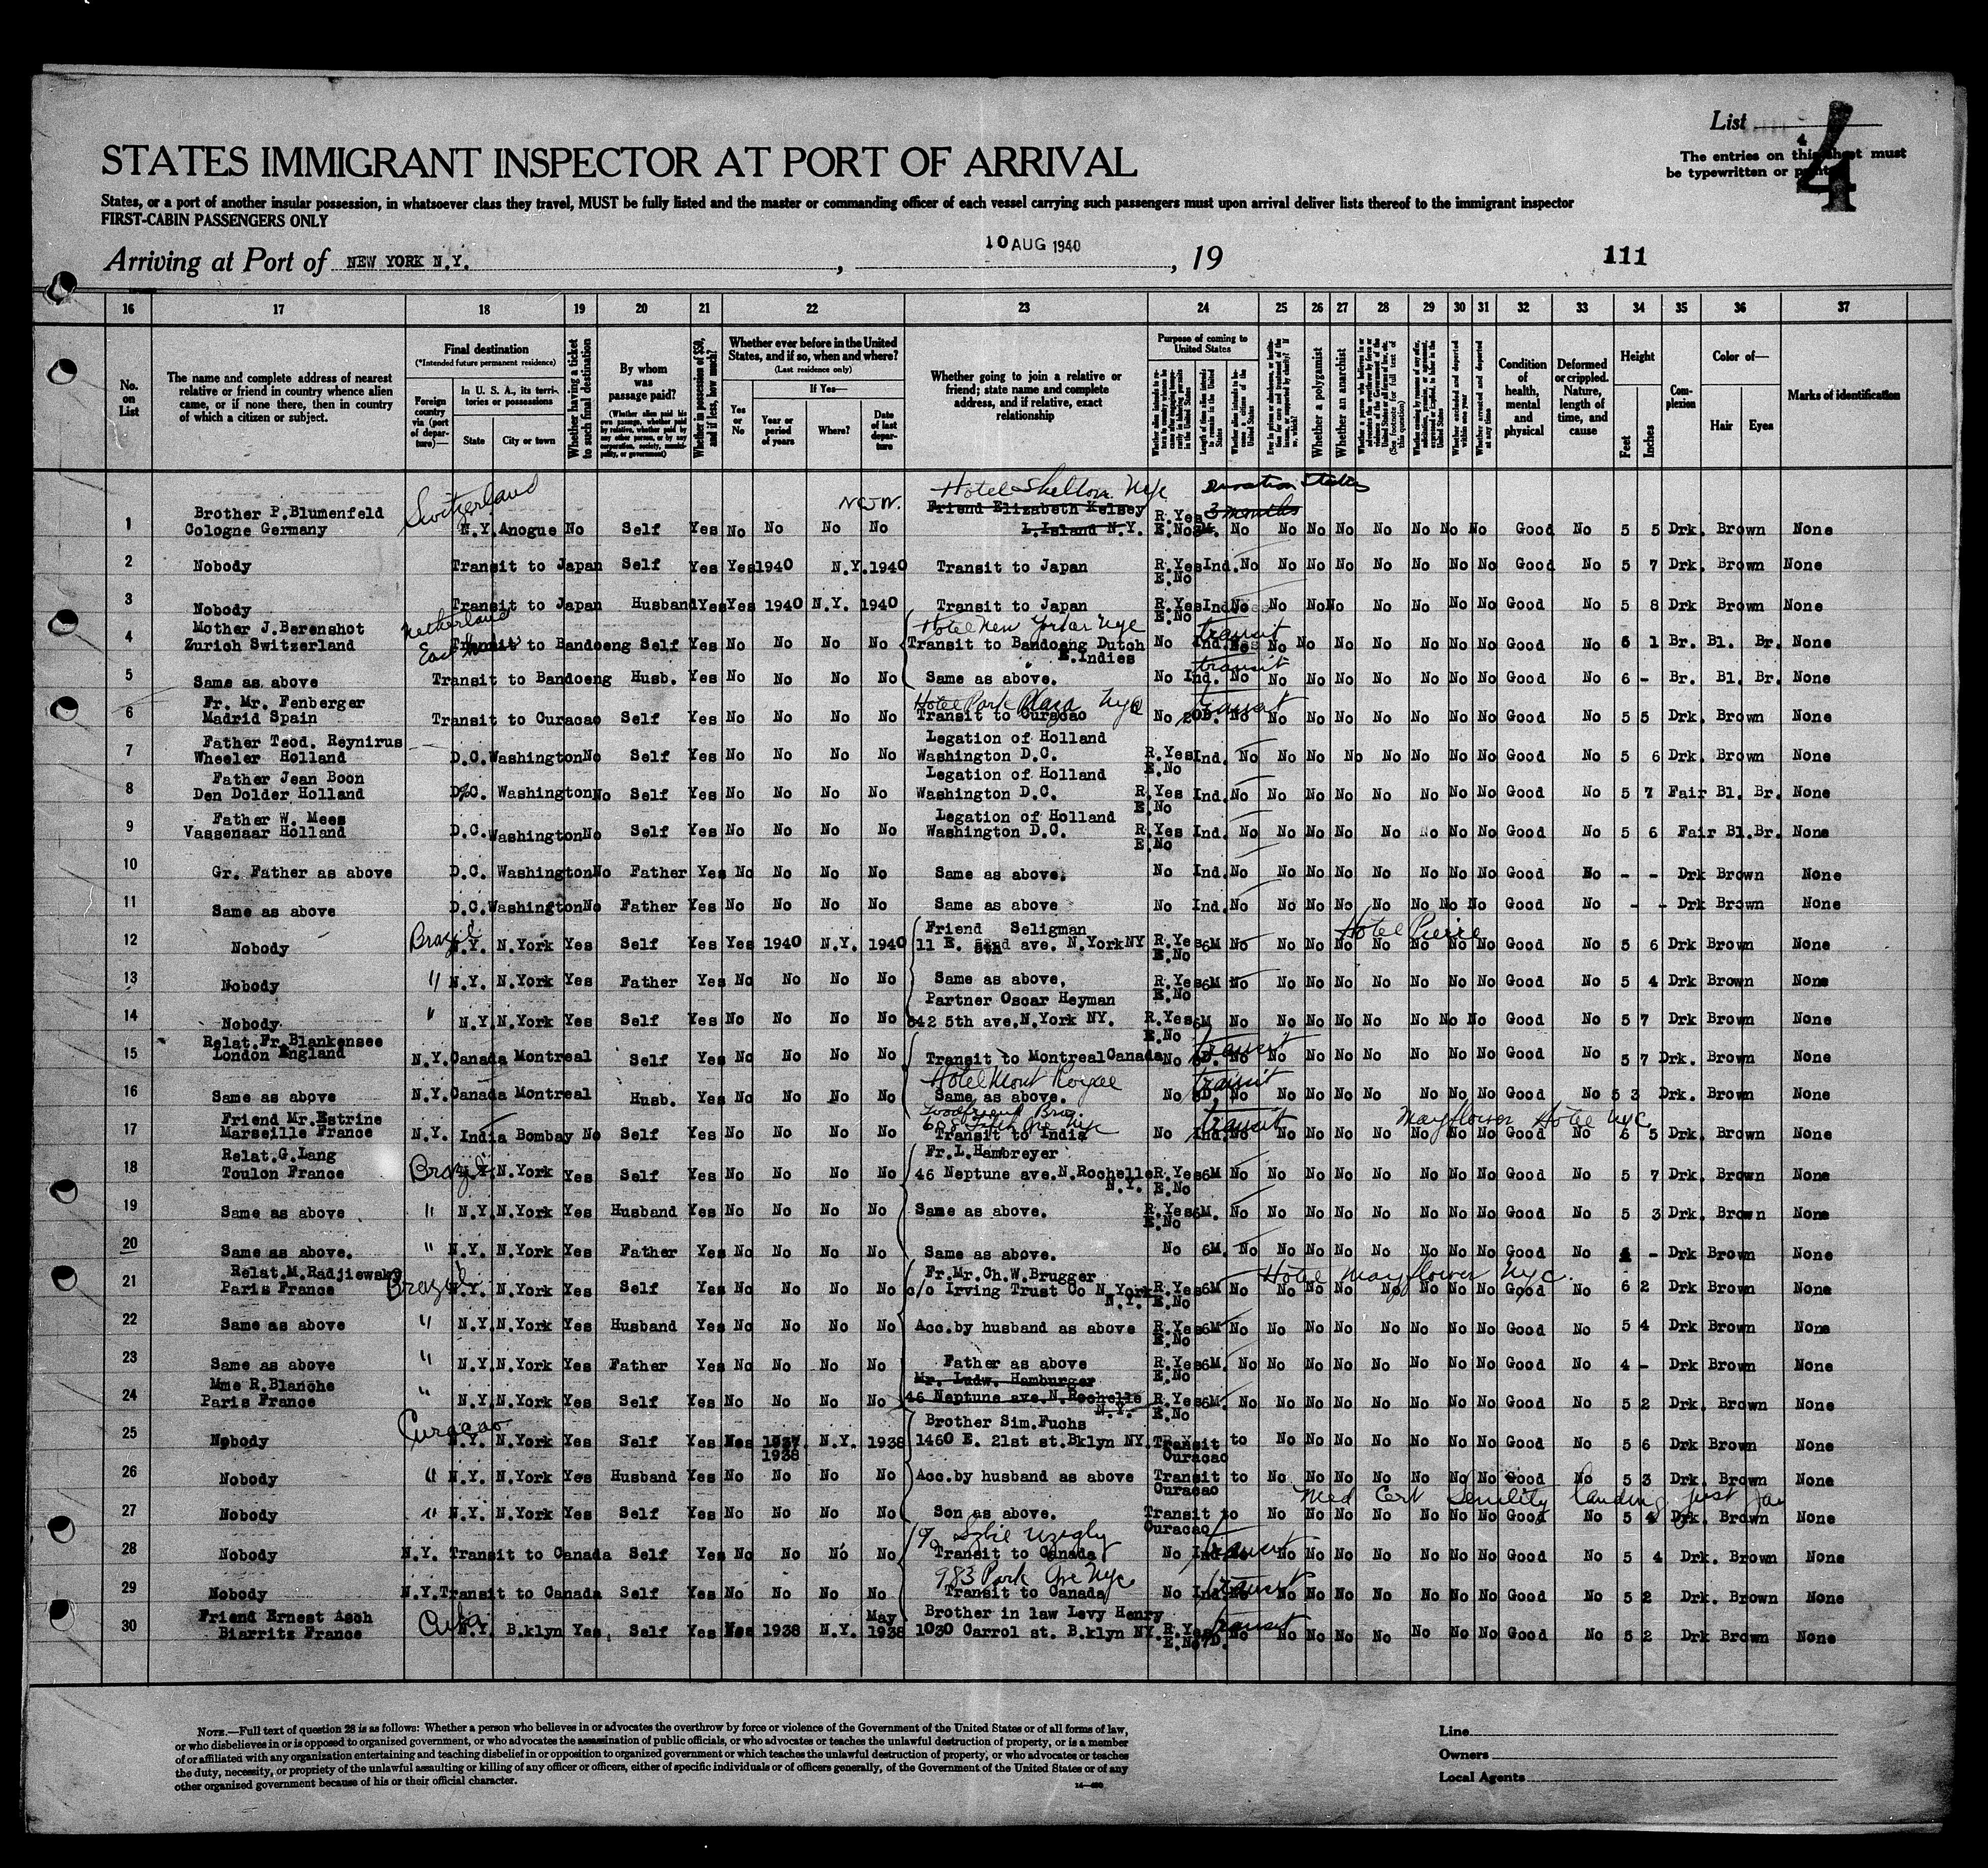 List
4
4
STATES IMMIGRANT INSPECTOR AT PORT OF ARRIVAL
The entries on this sheet must
be typewritten or printed
States, or a port of another insular possession, in whatsoever class they travel, MUST be fully listed and the master or commanding officer of each vessel carrying such passengers must upon arrival deliver lists thereof to the immigrant inspector
FIRST-CABIN PASSENGERS ONLY
Arriving at Port of NEW YORK N.Y., 10 AUG 1940, 19
111
16 17 18 19 20 21 22 23 24 25 26 27 28 29 30 31 32 33 34 35 36 37
No. on List
The name and complete address of nearest relative or friend in country whence alien came, or if none there, then in country of which a citizen or subject.
Final destination
(*Intended future permanent residence)
Foreign country via (port of departure)—
In U. S. A., its territories or possessions
State City or town
Whether having a ticket to such final destination
By whom was passage paid?
(Whether alien paid his own passage, whether paid by relative, whether paid by any other person, or by any corporation, society, municipality, or government)
Whether in possession of $50, and if less, how much?
Whether ever before in the United States, and if so, when and where?
(Last residence only)
Yes or No
If Yes—
Year or period of years
Where?
Date of last departure
Whether going to join a relative or friend; state name and complete address, and if relative, exact relationship
Purpose of coming to United States
Length of time alien intends to remain in the United States
Whether alien intends to become a citizen of the United States
Whether a polygamist
Whether an anarchist
Whether excluded and deported within one year
Whether arrested and deported at any time
Condition of health, mental and physical
Deformed or crippled. Nature, length of time, and cause
Height
Feet Inches
Complexion
Color of—
Hair Eyes
Marks of identification
1 Brother P.Blumenfeld Cologne Germany Switzerland N.Y. Anogue No Self Yes No No No No Hotel Shelton NYC Friend Elizabeth Kelsey L.Island N.Y. R.Yes E.No 3 months No No No No No No No No Good No 5 5 Drk. Brown None
2 Nobody Transit to Japan Self Yes Yes 1940 N.Y. 1940 Transit to Japan R.Yes E.No Ind. No No No No No No No No Good No 5 7 Drk. Brown None
3 Nobody Transit to Japan Husband Yes Yes 1940 N.Y. 1940 Transit to Japan R.Yes E.No Ind. No No No No No No No Good No 5 8 Drk Brown None
4 Mother J.Berenshot Zurich Switzerland Netherland East Transit to Bandoeng Self Yes No No No No Hotel New Yorker NYC Transit to Bandoeng Dutch E.Indies No Ind. transit No No No No No No No Good No 6 1 Br. Bl. Br. None
5 Same as above Transit to Bandoeng Husb. Yes No No No No Same as above. No Ind. transit No No No No No No No No Good No 6 - Br. Bl. Br. None
6 Fr. Mr. Fenberger Madrid Spain Transit to Curacao Self Yes No No No No Hotel Park Plaza NYC Transit to Curacao No 20D. transit No No No No No No No No Good No 5 5 Drk. Brown None
7 Father Teod. Reynirus Wheeler Holland D.C. Washington No Self Yes No No No No Legation of Holland Washington D.C. R.Yes E.No Ind. No No No No No No No No Good No 5 6 Drk. Brown None
8 Father Jean Boon Den Dolder Holland D.C. Washington No Self Yes No No No No Legation of Holland Washington D.C. R.Yes E.No Ind. No No No No No No No No Good No 5 7 Fair Bl. Br. None
9 Father W. Mees Vaasenaar Holland D.C. Washington No Self Yes No No No No Legation of Holland Washington D.C. R.Yes E.No Ind. No No No No No No No No Good No 5 6 Fair Bl.Br. None
10 Gr. Father as above D.C. Washington No Father Yes No No No No Same as above. No Ind. No No No No No No No No Good No - - Drk Brown None
11 Same as above D.C. Washington No Father Yes No No No No Same as above No Ind. No No No No No No No No Good No - - Drk Brown None
12 Nobody Brazil N.Y. N.York Yes Self Yes Yes 1940 N.Y. 1940 Friend Seligman 11 E. 52nd 5th ave. N.York NY R.Yes E.No 6M No No No No No No No No Hotel Pierre Good No 5 6 Drk Brown None
13 Nobody " N.Y. N.York Yes Father Yes No No No No Same as above, R.Yes E.No 6M No No No No No No No No Good No 5 4 Drk Brown None
14 Nobody " N.Y. N.York Yes Self Yes No No No No Partner Oscar Heyman 642 5th ave. N.York NY. R.Yes E.No 6M No No No No No No No No Good No 5 7 Drk Brown None
15 Relat.Fr.Blankensee London England N.Y. Canada Montreal Self Yes No No No No Transit to Montreal Canada No transit No No No No No No No No Good No 5 7 Drk. Brown None
16 Same as above N.Y. Canada Montreal Husb. Yes No No No No Hotel Mont Royal Same as above. No transit No No No No No No No No Good No 5 3 Drk. Brown None
17 Friend Mr.Estrine Marseille France N.Y. India Bombay No Self Yes No No No No Goodfriend Bros. 608 Fifth Ave NYC Transit to India No Ind. transit No No No No No No No Mayflower Hotel NYC Good No 6 5 Drk. Brown None
18 Relat.G.Lang Toulon France Brazil N.Y. N.York Yes Self Yes No No No No Fr.L.Hambreyer 46 Neptune ave. N.Rochelle N.Y. R.Yes E.No 6M No No No No No No No No Good No 5 7 Drk. Brown None
19 Same as above " N.Y. N.York Yes Husband Yes No No No No Same as above. R.Yes E.No 6M. No No No No No No No No Good No 5 3 Drk. Brown None
20 Same as above. " N.Y. N.York Yes Father Yes No No No No Same as above. No 6M. No No No No No No No No Good No 4 - Drk Brown None
21 Relat.M.Radjiewsky Paris France Brazil N.Y. N.York Yes Self Yes No No No No Fr.Mr.Ch.W.Brugger c/o Irving Trust Co N.York N.Y. R.Yes E.No 6M Hotel Mayflower NYC. No No No No No No No No Good No 6 2 Drk Brown None
22 Same as above " N.Y. N.York Yes Husband Yes No No No No Acc.by husband as above R.Yes E.No 6M No No No No No No No No Good No 5 4 Drk Brown None
23 Same as above " N.Y. N.York Yes Father Yes No No No No Father as above R.Yes E.No 6M. No No No No No No No No Good No 4 - Drk Brown None
24 Mme R.Blanche Paris France " N.Y. N.York Yes Self Yes No No No No Mr. Ludw. Hamburger 46 Neptune ave. N.Rochelle N.Y. R.Yes E.No 6M. No No No No No No No No Good No 5 2 Drk. Brown None
25 Nobody Curacao N.Y. N.York Yes Self Yes 1937 1938 N.Y. 1938 Brother Sim.Fuchs 1460 E. 21st st. Bklyn NY. Transit to Curacao No No No No No No No Good No 5 6 Drk Brown None
26 Nobody " N.Y. N.York Yes Husband Yes No No No No Acc.by husband as above Transit to Curacao No No No No No No No Good No 5 3 Drk. Brown None
27 Nobody " N.Y. N.York Yes Self Yes No No No No Son as above. Transit to Curacao Med Cert Senility landing No No No No No No No Good No 5 4 Drk. Brown None
28 Nobody N.Y. Transit to Canada Self Yes No No No No Transit to Canada No Ind. transit No No No No No No No Good No 5 4 Drk. Brown None
29 Nobody N.Y. Transit to Canada Self Yes No No No No 983 Park Ave NYC Transit to Canada No Ind. transit No No No No No No No Good No 5 2 Drk. Brown None
30 Friend Ernest Asch Biarritz France Cuba N.Y. B.klyn Yes Self Yes 1938 N.Y. May 1938 Brother in law Levy Henry 1030 Carrol st. B.klyn NY. R.Yes E.No transit No No No No No No No No Good No 5 2 Drk Brown None
NOTE.—Full text of question 28 is as follows: Whether a person who believes in or advocates the overthrow by force or violence of the Government of the United States or of all forms of law,
or who disbelieves in or is opposed to organized government, or who advocates the assassination of public officials, or who advocates or teaches the unlawful destruction of property, or is a member
of or affiliated with any organization entertaining and teaching disbelief in or opposition to organized government or which teaches the unlawful destruction of property, or who advocates or teaches
the duty, necessity, or propriety of the unlawful assaulting or killing of any officer or officers, either of specific individuals or of officers generally, of the Government of the United States or of any
other organized government because of his or their official character.
Line
Owners
Local Agents